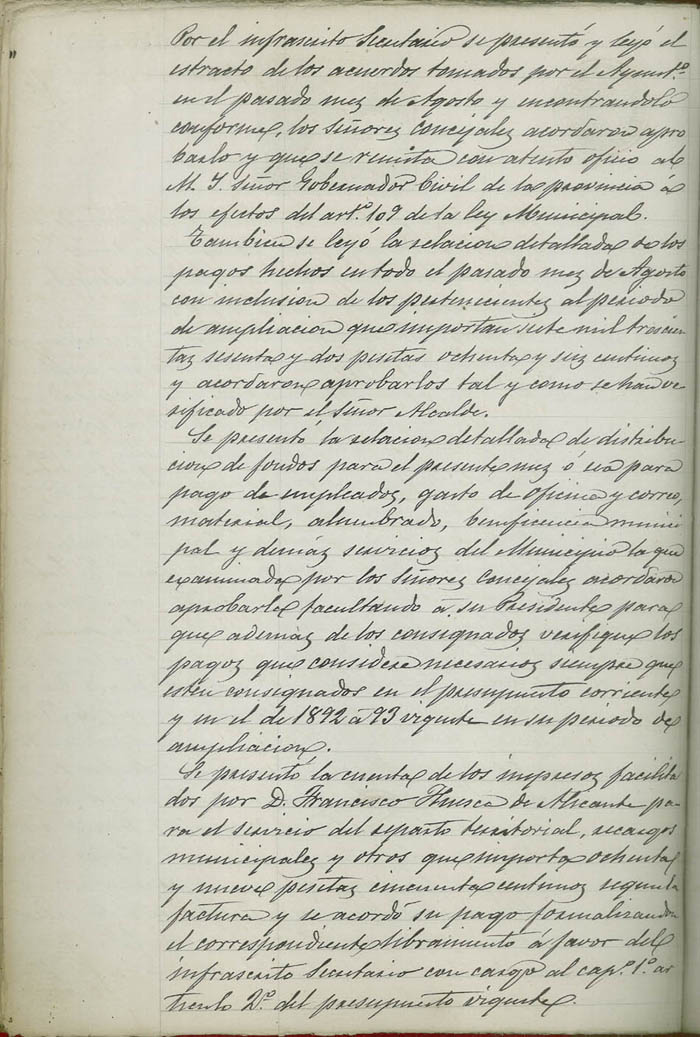 Por el infrascrito Secretario se presentó y leyó el
estracto de los acuerdos tomados por el Ayuntº
en el pasado mez de Agosto y encontrandolo
conforme, los Señorez Concejalez acordaron apro
barlo y que se remita con atento oficio al
M. I. Señor Gobernador Civil de la provincia á
los efectos del artº 109 de la ley Municipal.
Tambien se leyó la relacion detallada de los
pagos hechos en todo el pasado mez de Agosto
con inclusion de los pertenecientez al periodo
de ampliacion que importan siete mil trescien
taz sesenta y dos pesetas ochenta y seiz centimoz
y acordaron aprobarlos tal y como se han ve
rificado por el Señor Alcalde.
Se presentó la relacion detallada de distribu
cion de fondos para el presente mez ó sea para
pago de empleadoz, gasto de oficina y correo,
material, alumbrado, beneficencia munici
pal y demáz servicioz del Municipio la que
examinada por los Señorez Concejalez acordaron
aprobarla facultando á su Presidente para
que ademáz de los consignados verifique los
pagoz que considere necesarioz siempre que
estén consignados en el presupuesto corriente
y en el de 1892 á 93 vigente en su periodo de
ampliacion.
Se presentó la cuenta de los impresoz facilita
dos por D. Francisco Huesca de Alicante pa-
ra el servicio del reparto territorial, recargos
municipalez y otros que importa ochenta
y nueve pesetaz cincuenta centimoz segun la
factura y se acordó su pago formalizandose
el correspondiente libramiento á favor del
infrascrito Secretario con cargo al capº 1º ar
ticulo 2º del presupuesto vigente.